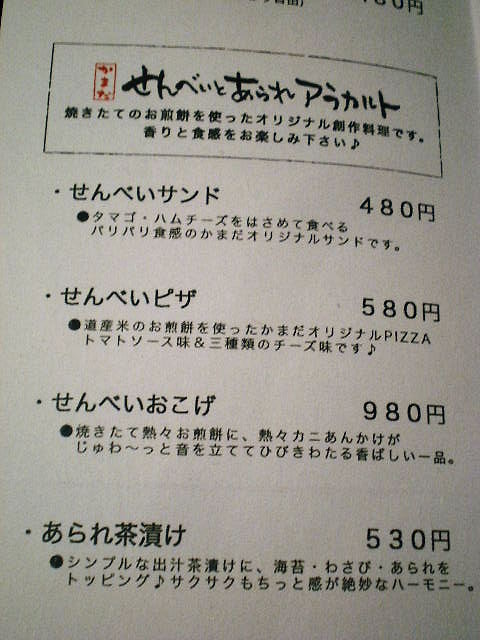 かまだ
せんべいとあられアラカルト
焼きたてのお煎餅を使ったオリジナル創作料理です。
香りと食感をお楽しみ下さい♪
・せんべいサンド 480円
●タマゴ・ハムチーズをはさめて食べる
パリパリ食感のかまだオリジナルサンドです。
・せんべいピザ 580円
●道産米のお煎餅を使ったかまだオリジナルPIZZA
トマトソース味＆三種類のチーズ味です♪
・せんべいおこげ 980円
●焼きたて熱々お煎餅に、熱々カニあんかけが
じゅわ～っと音を立ててひびきわたる香ばしい一品。
・あられ茶漬け 530円
●シンプルな出汁茶漬けに、海苔・わさび・あられを
トッピング♪サクサクもちっと感が絶妙なハーモニー。